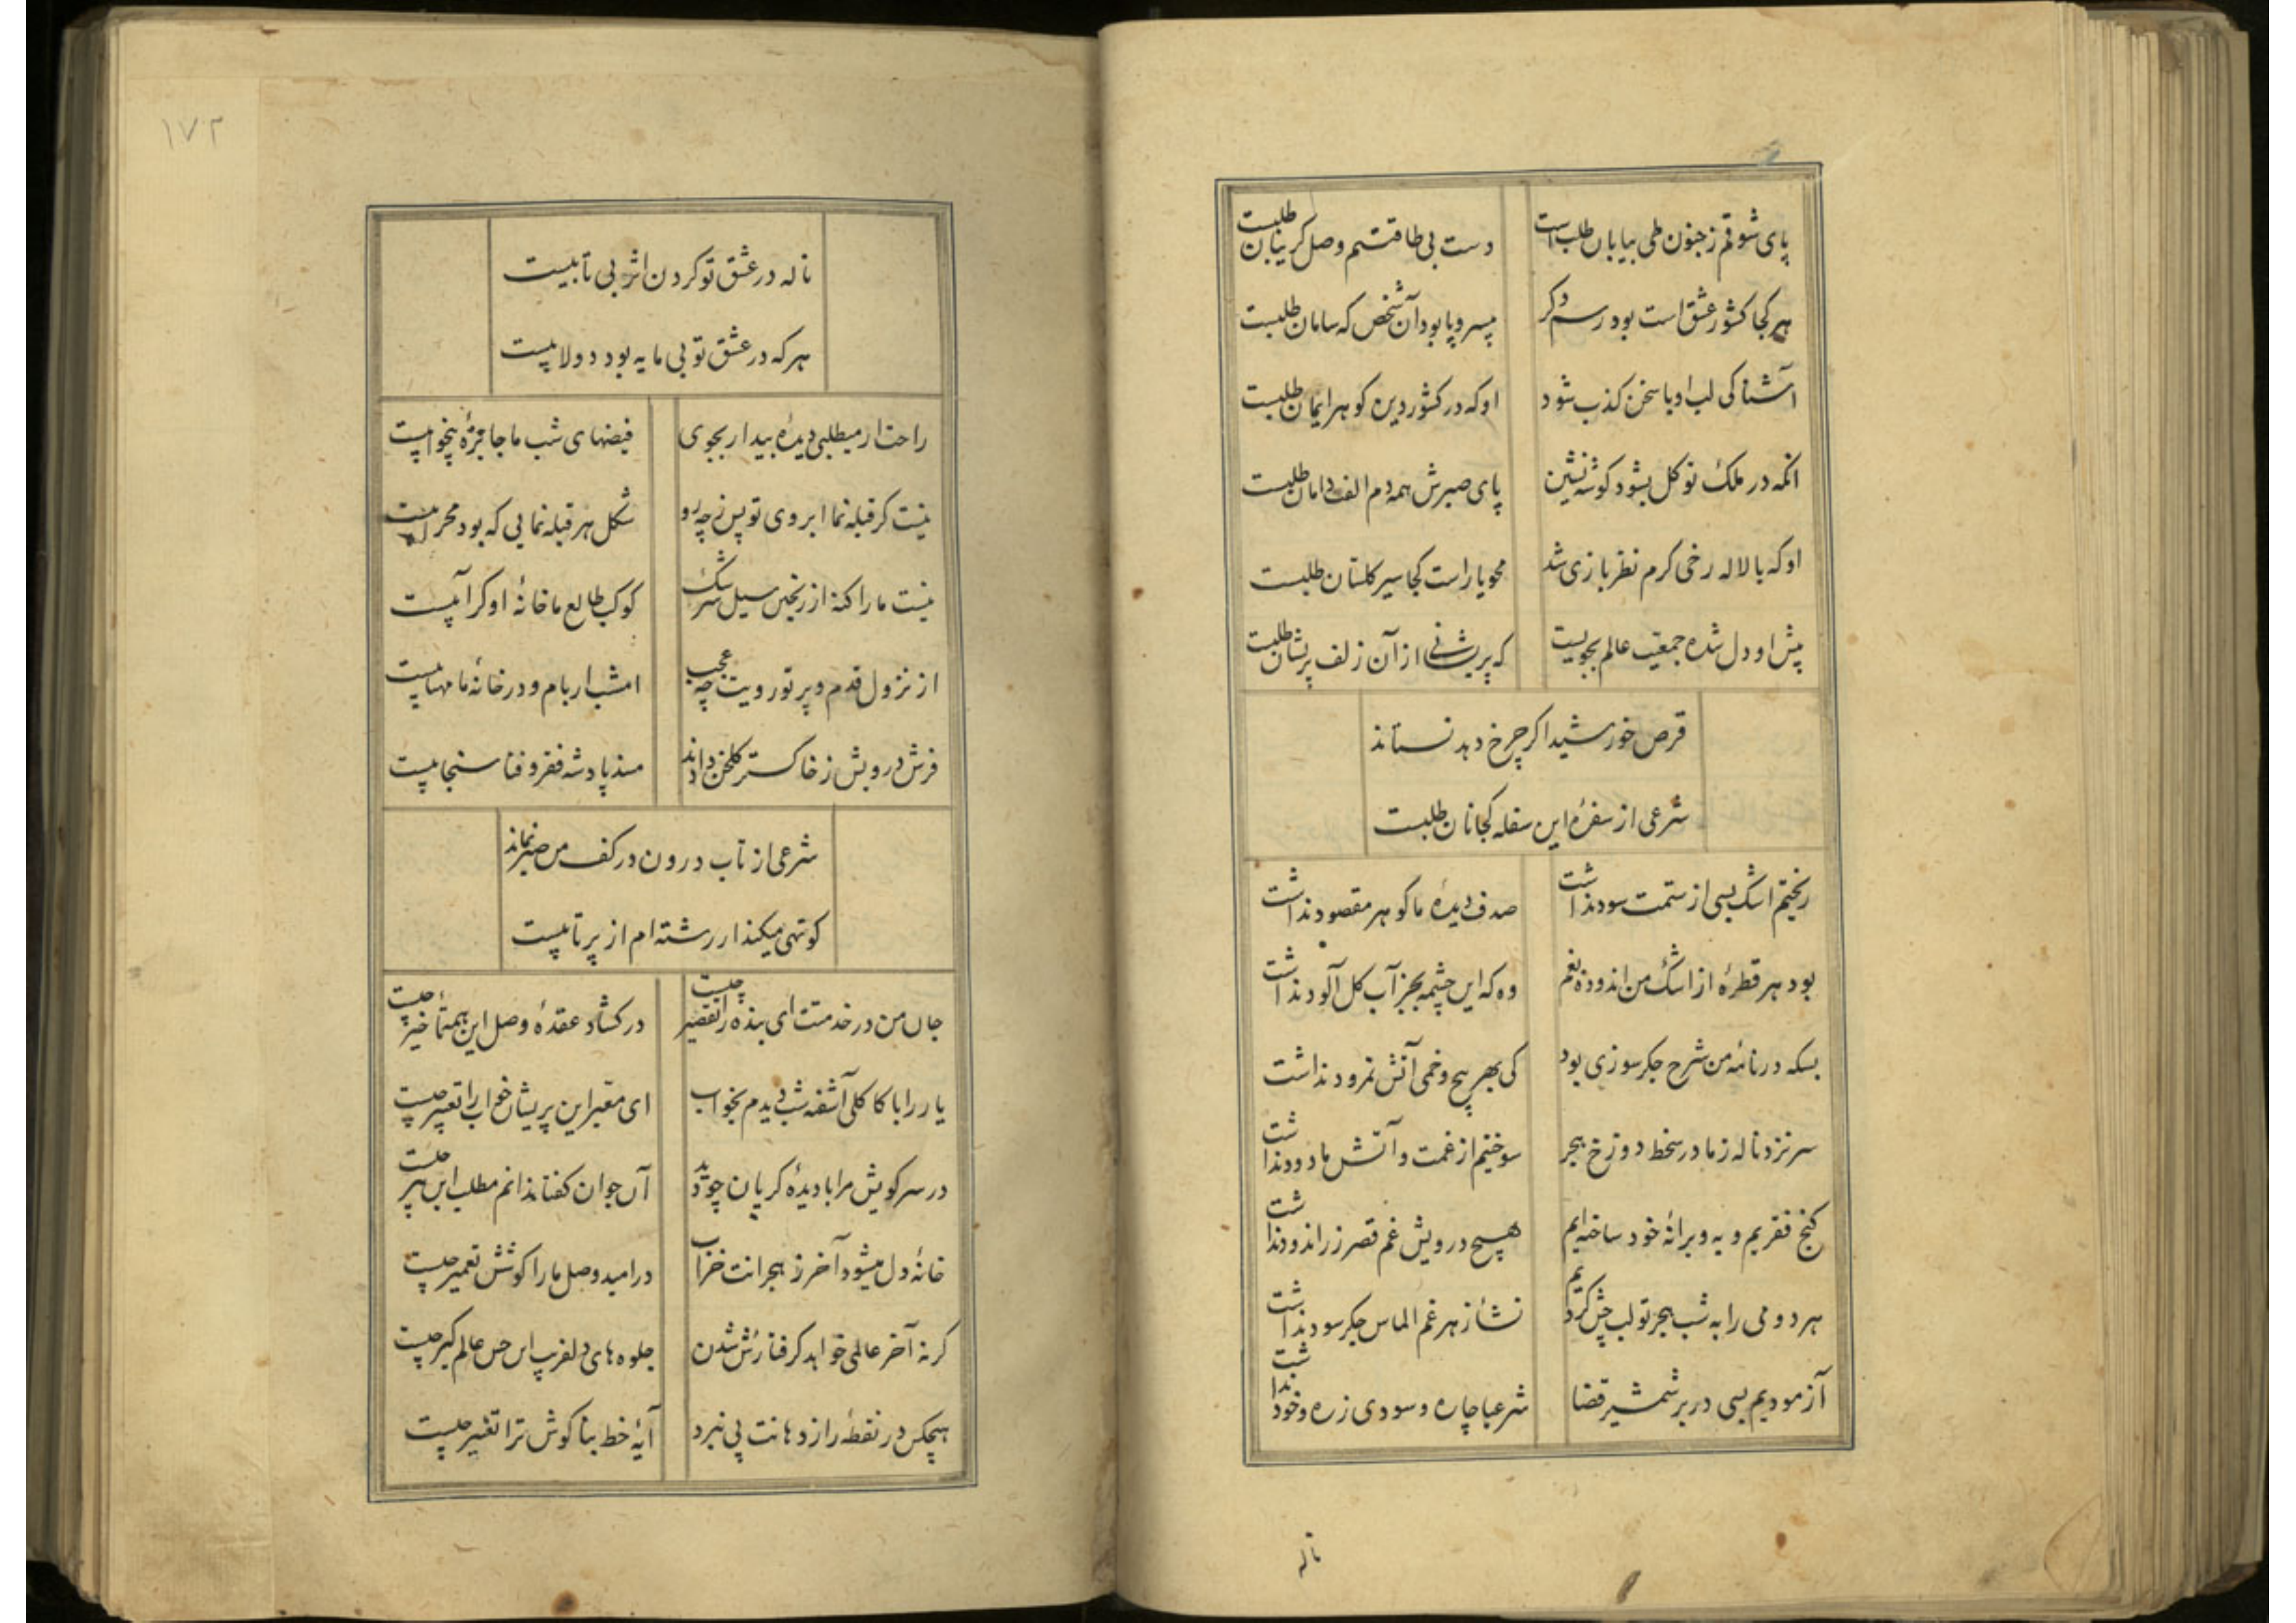 پای شوقم ز جنون طی بیابان طلب است
دست بی طاقتیم وصل کریبان طلبست
هر کجا کشور عشق است بود رسم دکر
بیسر و پا بود آن شخص که سامان طلبست
آشنا کی لب او با سخن کذب شود
او که در کشور دین کوهر ایمان طلبست
انکه در ملک توکل بشود کوشه نشین
پای صبرش همه دم الف دامان طلبست
او که با لاله رخی کرم نظر بازی شد
محو یار است کجا سیر کلستان طلبست
پیش او دل شده جمعیت عالم بجویست
که پریشانی از آن زلف پریشان طلبست
قرص خورشید اکر چرخ دهد نستاند
شرعی از سفرهٔ این سفله کجا نان طلبست
ریختیم اشک بسی از ستمت سود نداشت
صدف دیدهٔ ما کوهر مقصود نداشت
بود هر قطرهٔ از اشک من اندوده غم
وه که این چشمه بجز آب کل آلود نداشت
بسکه در نامهٔ من شرح جکر سوزی بود
کی بهر پیچ و خمی آتش نمرود نداشت
سر نزد ناله ز ما در سخط دوزخ هجر
سوختیم از غمت و آتش ما دود نداشت
کنج فقریم و به ویرانهٔ خود ساخته‌ایم
هیچ درویش غم قصر زر اندود نداشت
هر دو می را به شب هجر تو لب چش کردیم
نشأ زهر غم الماس جکر سود نداشت
آزمودیم بسی در بر شمشیر قضا
شرعیا چاره و سودی زره و خود نداشت
ناله
۱۷۲
ناله در عشق تو کردن اثر بی تابیست
هر که در عشق تو بی مایه بود دولابیست
راحت ار میطلبی دیدهٔ بیدار بجوی
فیضهای شب ما جایزهٔ بیخوابیست
نیست کر قبله نما ابروی تو پس ز چه رو
شکل هر قبله نمایی که بود محرابیست
نیست ما را کنه از ریختن سیل سرشک
کوکب طالع ما خانهٔ او کر آبیست
از نزول قدم و پرتو رویت چه عجب
امشب ار بام و در خانهٔ ما مهتابیست
فرش درویش ز خاکستر کلخن دادند
مسند پادشه فقر و فنا سنجابیست
شرعی از تاب درون در کف من صبر نماند
کوتهی میکند ار رشته‌ام از پر تابیست
جان من در خدمتت ای بنده را تقصیر چیست
در کشاد عقدهٔ وصل این همه تأخیر چیست
یار را با کاکلی آشفته شب دیدم بخواب
ای معبر این پریشان خواب را تعبیر چیست
در سر کویش مرا با دیدهٔ کریان چو دید
آن جوان کفتا ندانم مطلب این پیر چیست
خانهٔ دل میشود آخر ز هجرانت خراب
در امید وصل ما را کوشش تعمیر چیست
کرنه آخر عالمی خواهد کرفتارش شدن
جلوه های دلفریب این حسن عالم کیر چیست
هیچکس در نقطهٔ راز دهانت پی نبرد
آیهٔ خط بنا کوش ترا تفسیر چیست